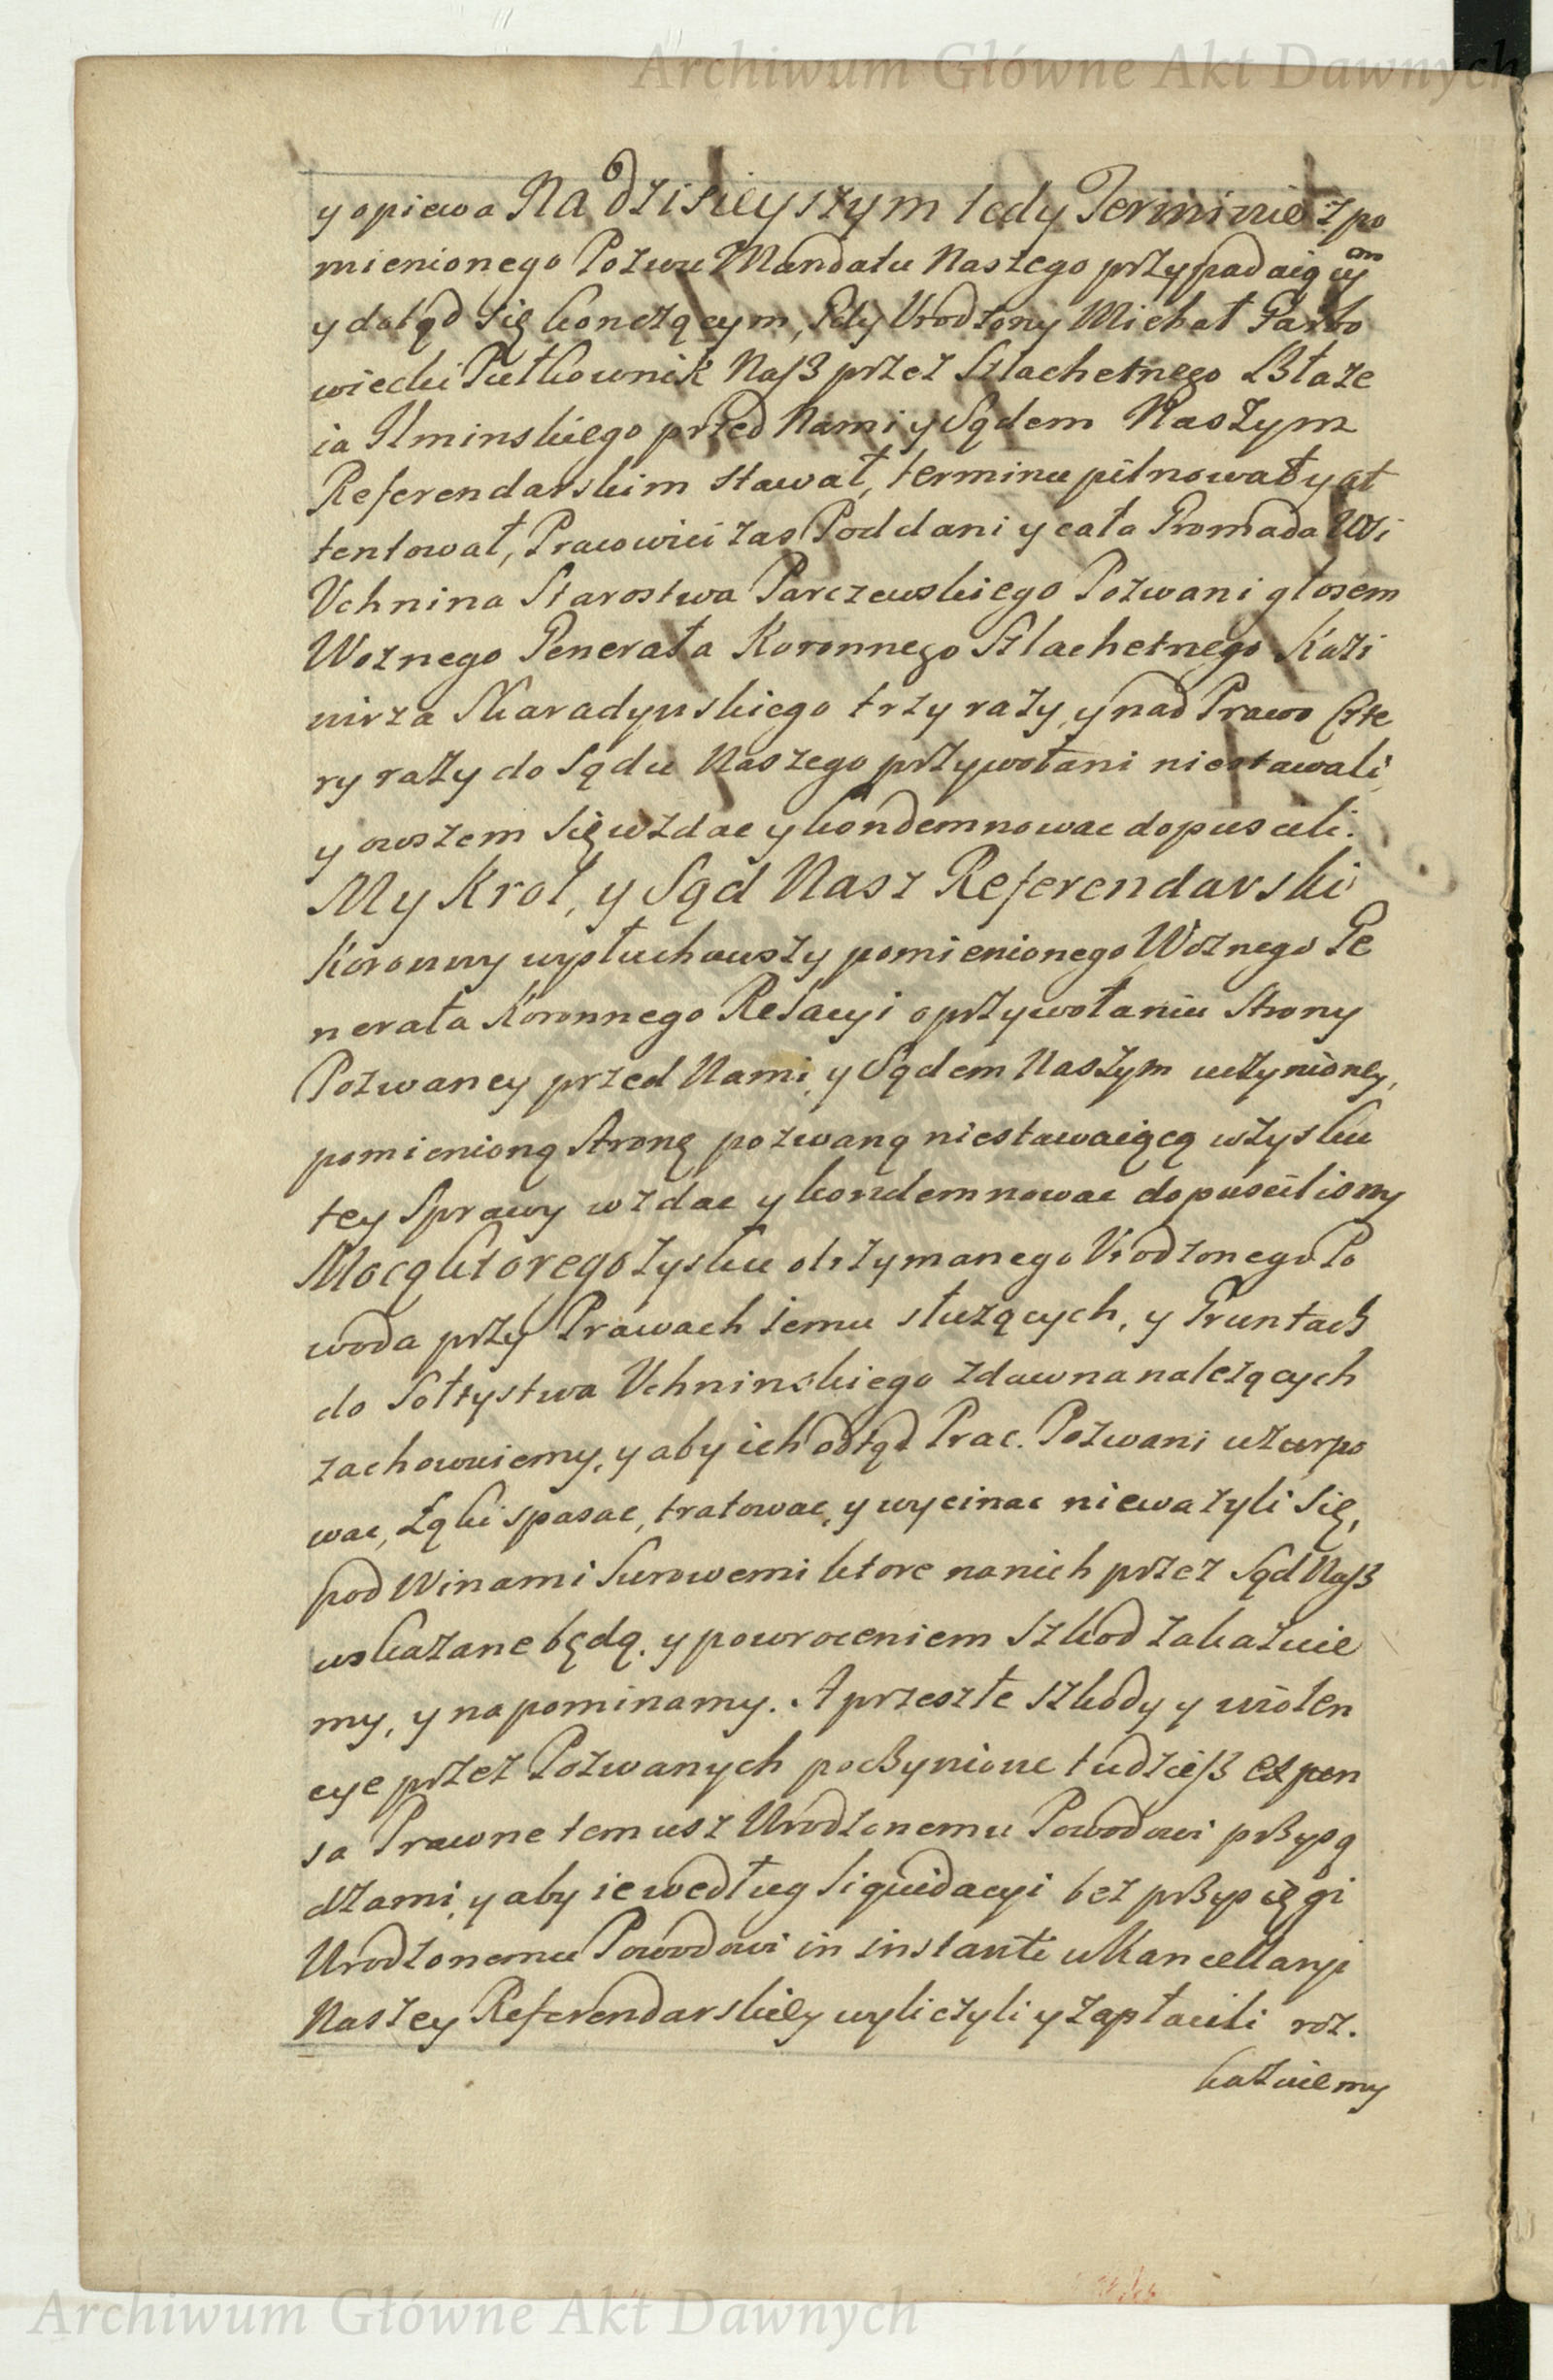 Archiwum Główne Akt Dawnych
y opiewa Na dzisieyszym tedy Terminie z po
mienionego Pozwu Mandatu Naszego przypadaiącym
y dotąd się konczącym, Gdy Urodzony Michał Garbo
wiecki Pułkownik Nasz przez Szlachetnego Błaże
ia Ilminskiego przed Nami y Sądem Naszym
Referendarskim stawał, terminu pilnował y at
tentował, Pracowici zas Poddani y cała Gromada Wsi
Uchnina Starostwa Parczewskiego Pozwani głosem
Woznego Generała Koronnego Szlachetnego Kazi
mirza Skaradynskiego trzy razy, y nad Prawo Czte
ry razy do Sądu Naszego przywołani niestawali,
y owszem się wzdac y kondemnowac dopuscili.
My Krol, y Sąd Nasz Referendarski
Koronny wysłuchawszy pomienionego Woznego Ge
nerała Koronnego Relacyi o przywołaniu Strony
Pozwaney przed Nami, y Sądem Naszym uczynioney,
pomienioną Stronę pozwaną niestawaiącą wzysku
tey Sprawy wzdac y kondemnowac dopuscilismy
Mocą ktorego zysku otrzymanego Urodzonego Po
woda przy Prawach iemu służących, y Gruntach
do Sołtystwa Uchninskiego zdawna nalezących
zachowuiemy, y aby ich odtąd Prac. Pozwani uzurpo
wac, Łąki spasac, tratowac, y wycinac nieważyli się,
pod Winami Surowemi ktore nanich przez Sąd Nasz
wskazane będą, y powroceniem Szkod zakazuie
my, y napominamy. A przeszłe szkody y wiolen
cye przez Pozwanych poczynione tudziesz expen
sa Prawne temusz Urodzonemu Powodowi przysą
dzami, y aby ie według liquidacyi bez przysięgi
Urodzonemu Powodowi in instanti w Kancellaryi
Naszey Referendarskiey wyliczyli y zapłacili roz.
kazuiemy
Archiwum Główne Akt Dawnych